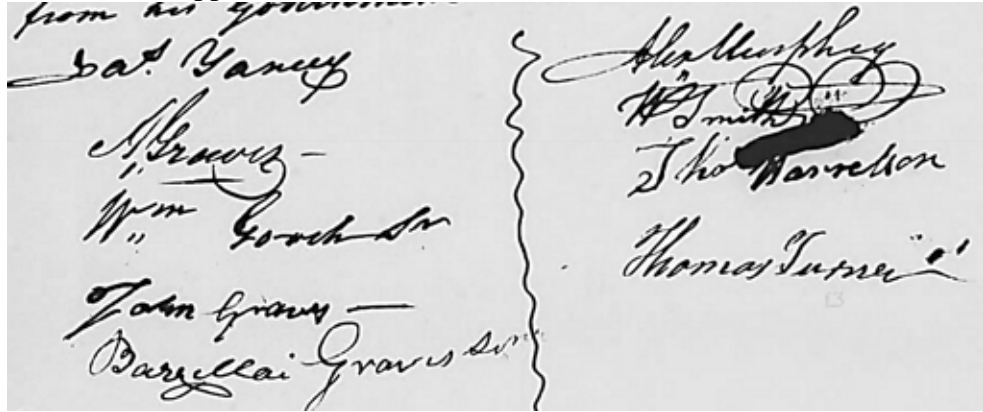 from his Government
Bat. Yancey
A. Graves
Wm Gooch Sr
John Graves
Barzillai Graves Senr
Alex Murphey
W. Smith
Tho Harrelson
Thomas Turner